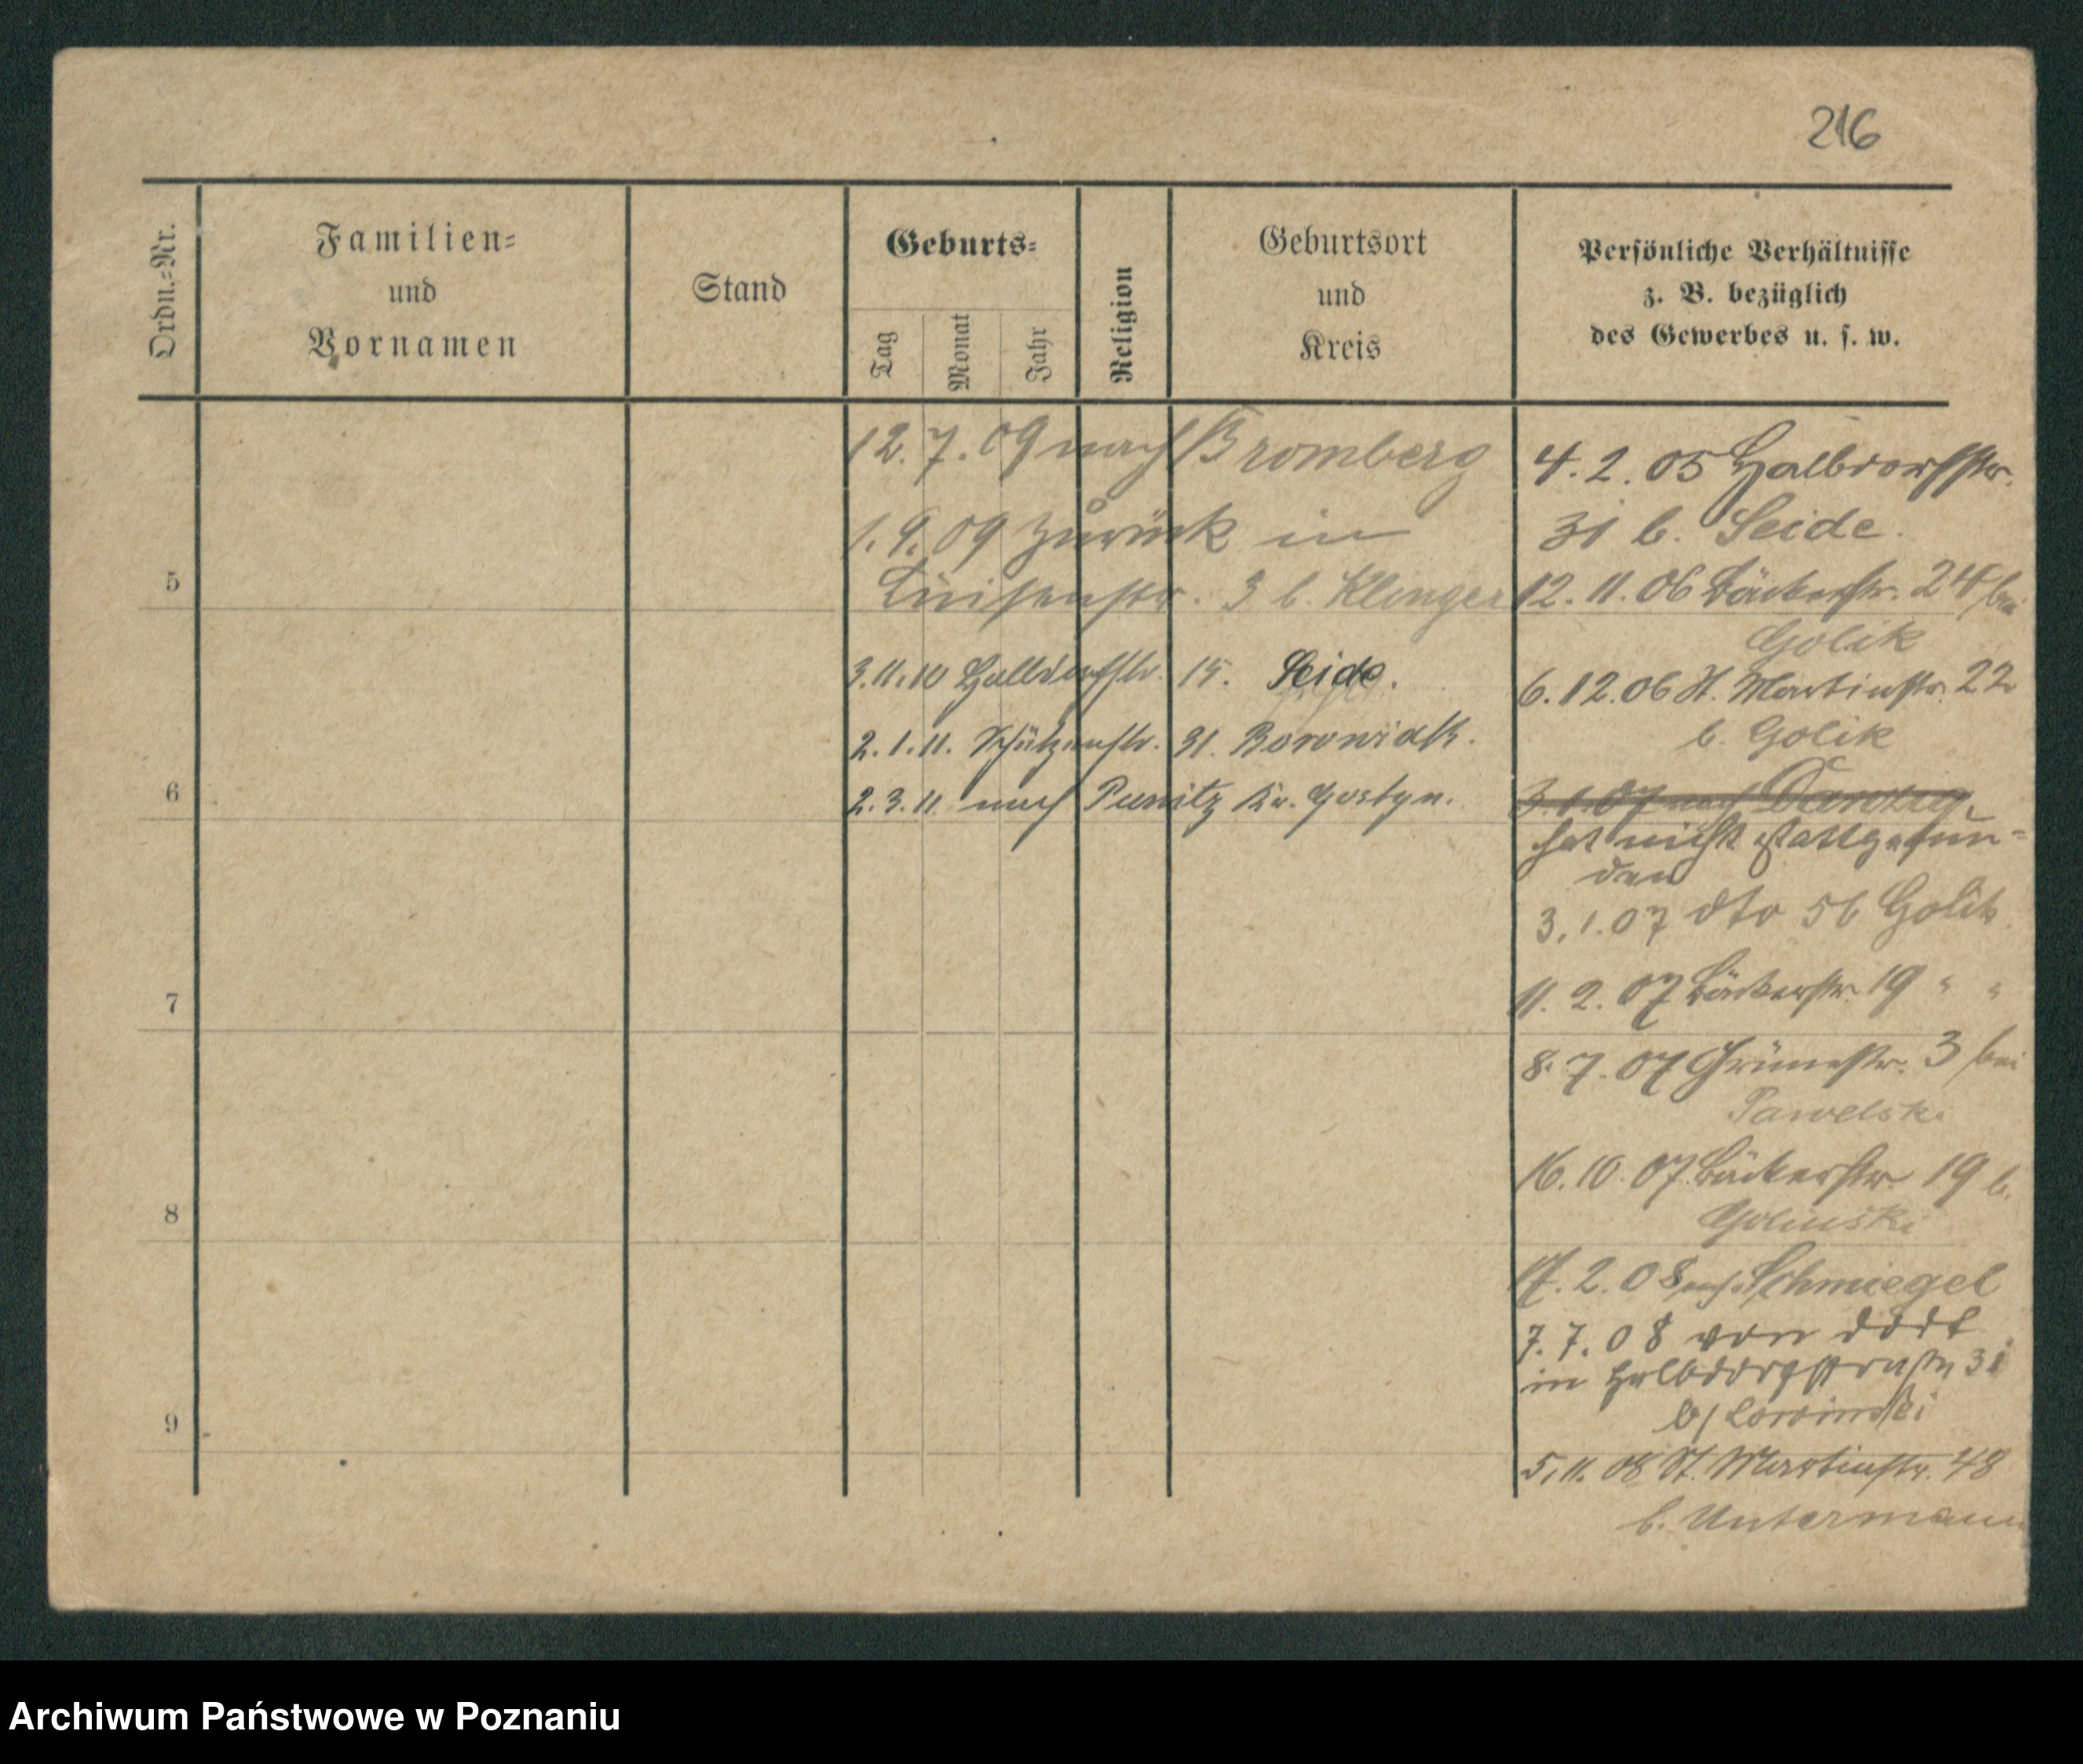 216
Ordn.-Nr.
Familien-
und
Vornamen
Stand
Geburts-
Tag
Monat
Jahr
Religion
Geburtsort
und
Kreis
Persönliche Verhältnisse
z. B. bezüglich
des Gewerbes u. s. w.
12. 7. 09 nach Bromberg
1. 9. 09 zurück in
Luisenstr. 3 b. Klinger
3. 11. 10 Halbdorfstr. 15. Seide.
2. 1. 11. Schützenstr. 31. Borowiak.
2. 3. 11 nach Punitz Kr. Gostyn.
5
6
7
8
9
4. 2. 05 Halbdorfstr.
31 b. Seide.
12. 11. 06 Bäckerstr. 24 bei
Golik
6. 12. 06 St. Martinstr. 22
b. Golik
3. 1. 07 nach Danzig
hat nicht stattgefun-
den
3. 1. 07 dto 56 Golik
11. 2. 07 Bäckerstr. 19 " "
8. 7. 07 Grünestr. 3 bei
Pawelski
16. 10. 07 Bäckerstr. 19 b.
Golinski
17. 2. 08 nach Schmiegel
7. 7. 08 von dort
in Halbdorfstraße 31
b/ Lowinski
5. 11. 08 St. Martinstr. 48
b. Untermann
Archiwum Państwowe w Poznaniu